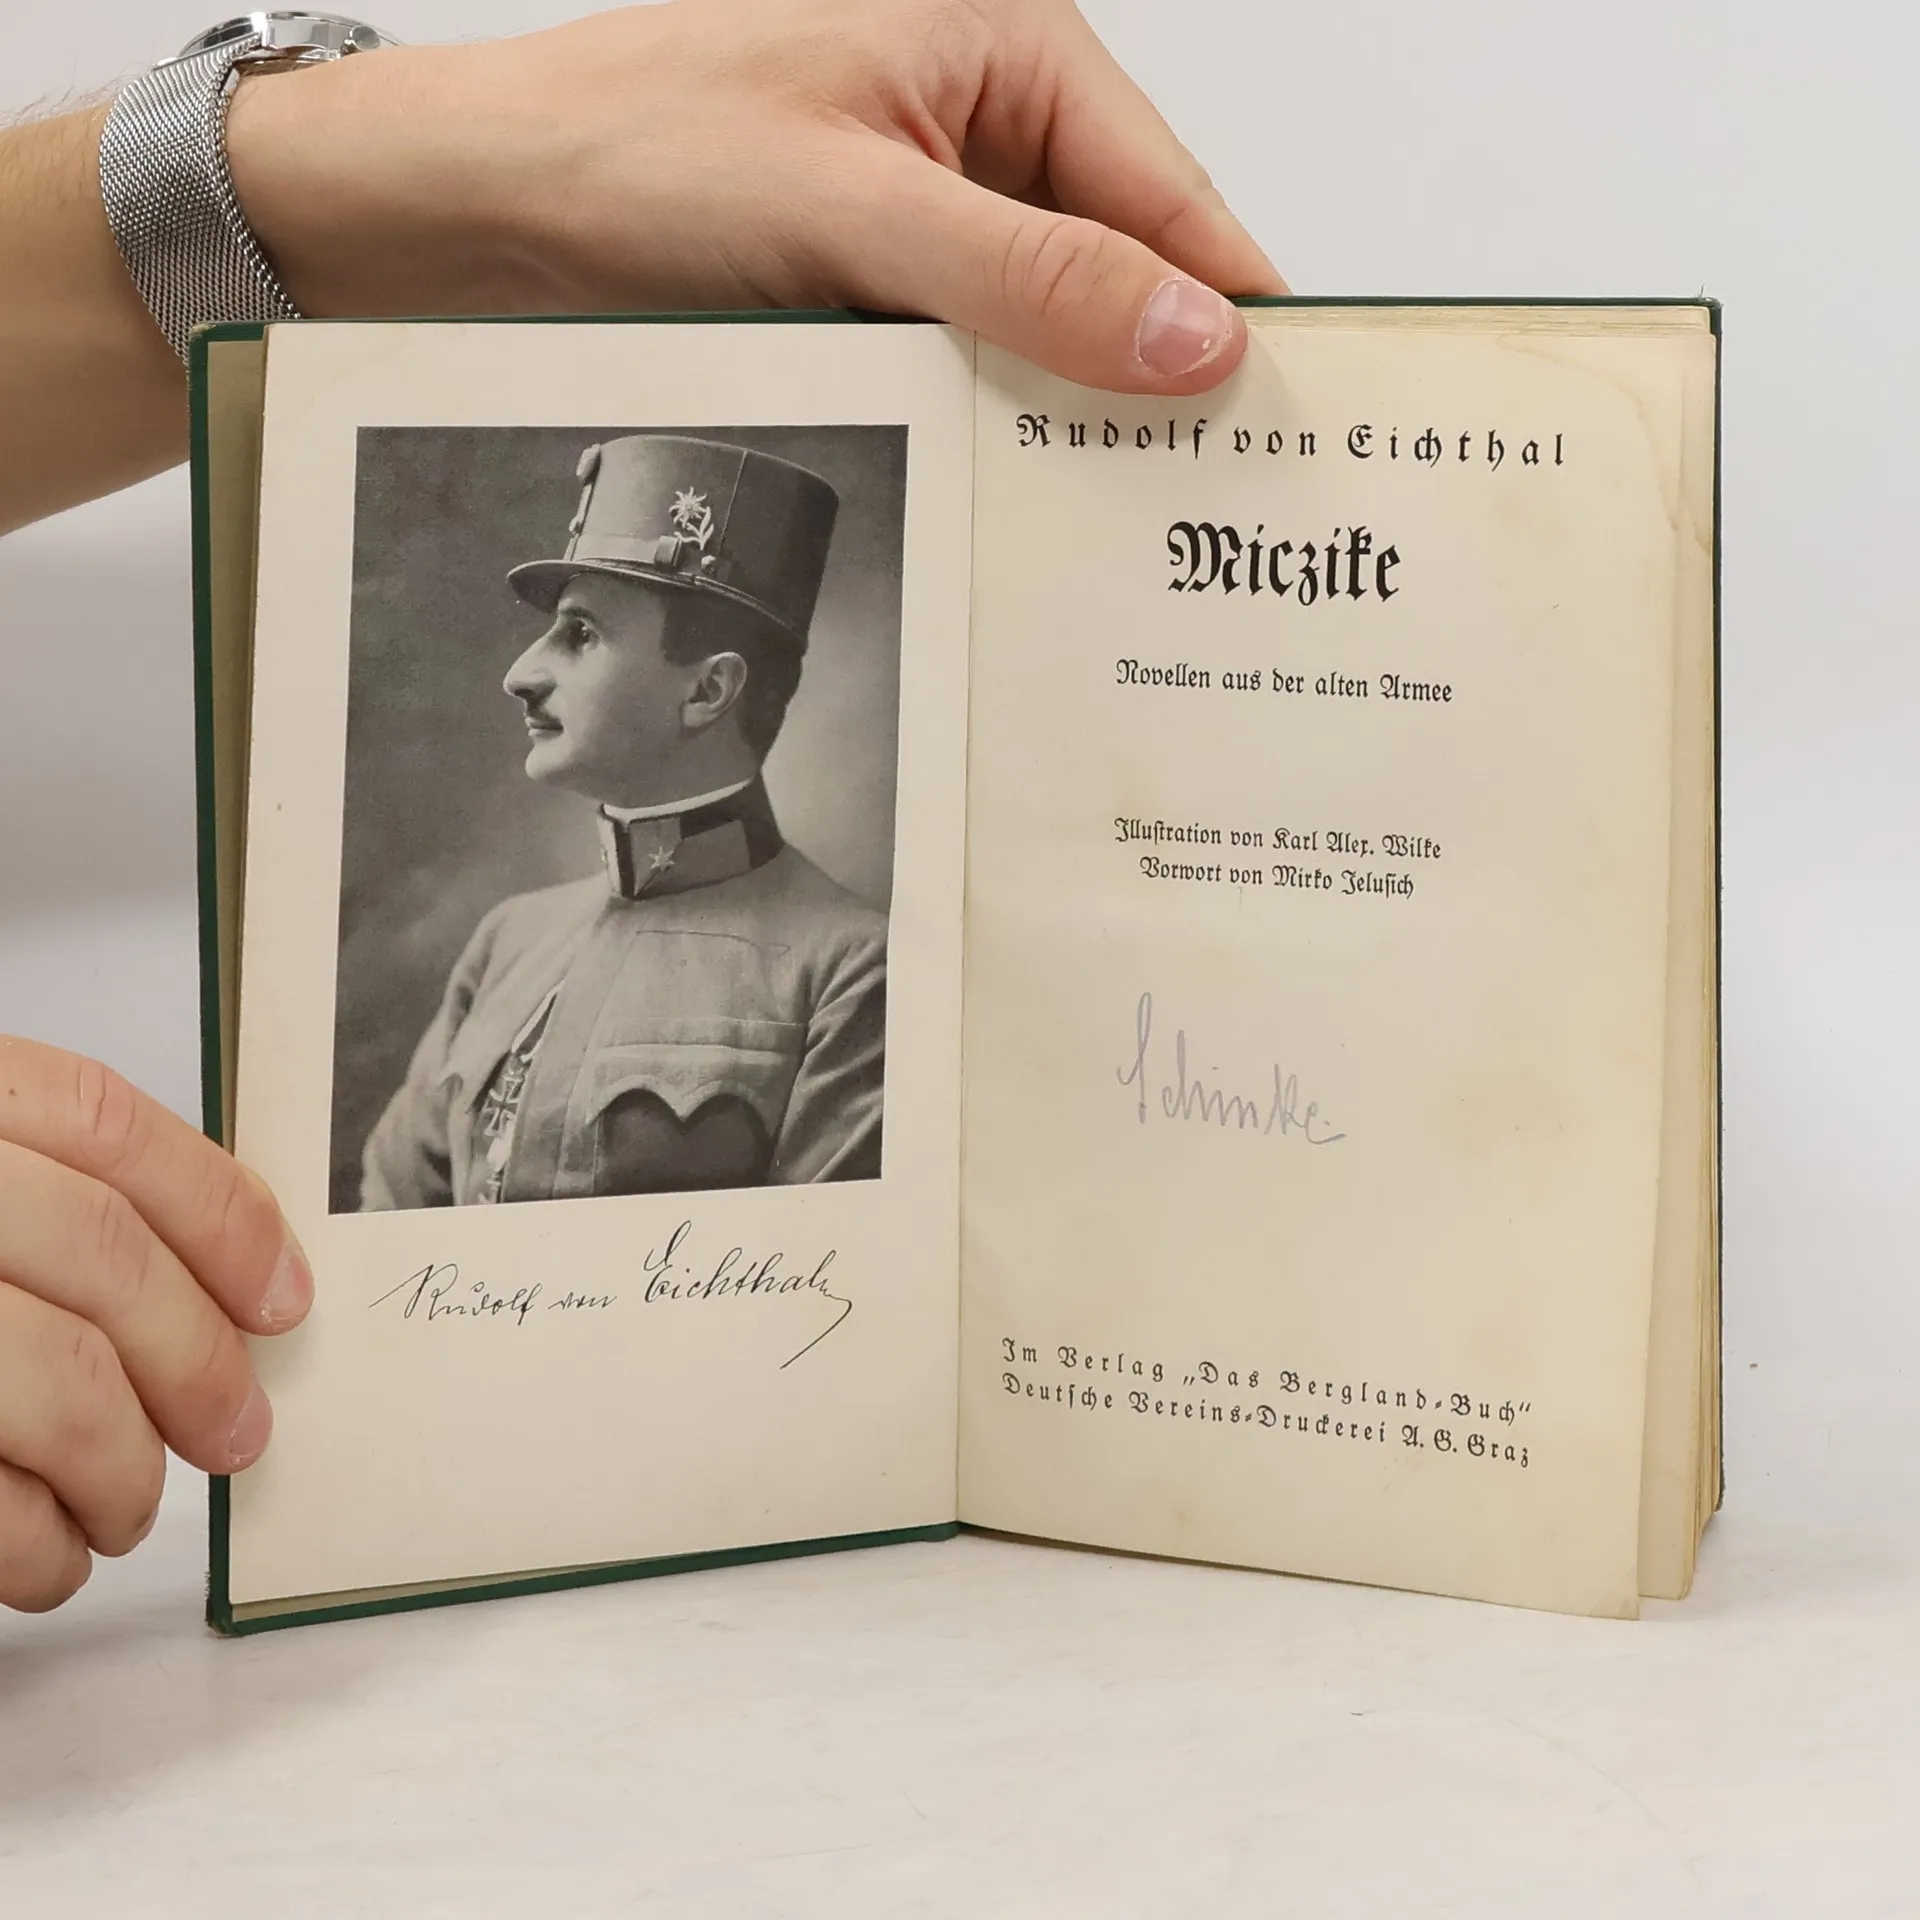 Rudolf von Eichthal
Rudolf von Eichthal
Miczike
Novellen aus der alten Armee
Illustration von Karl Alex. Wilke
Vorwort von Mirko Jelusich
Schimke
Im Verlag „Das Bergland-Buch“
Deutsche Vereins-Druckerei A. G. Graz